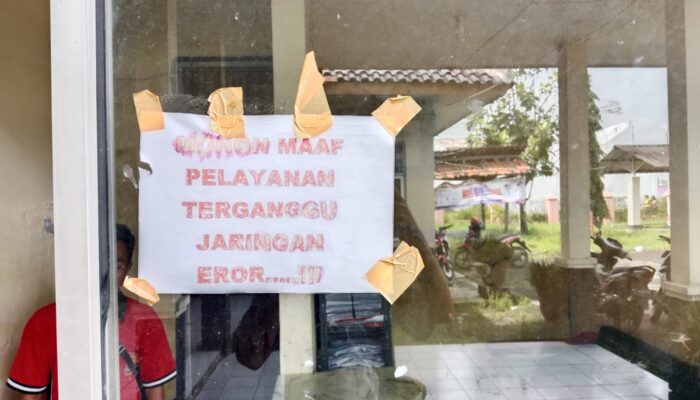 MOHON MAAF
PELAYANAN
TERGANGGU
JARINGAN
EROR.....!!!